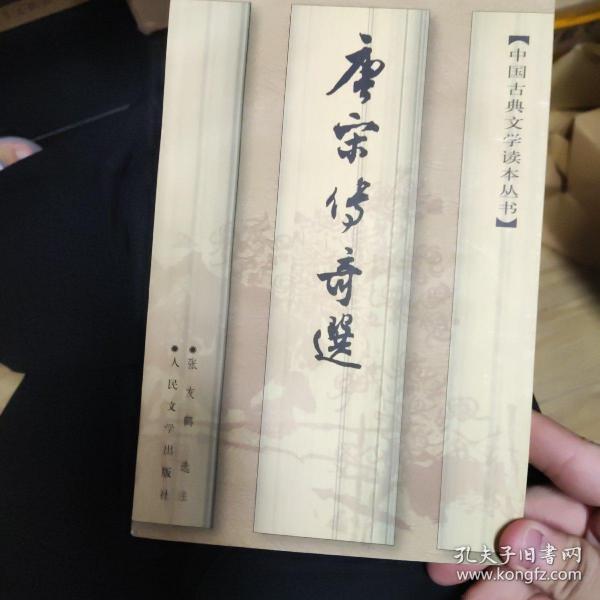 【中国古典文学读本丛书】
唐宋传奇選
●张友鹤 选注
●人民文学出版社
孔夫子旧书网
www.kongfz.com